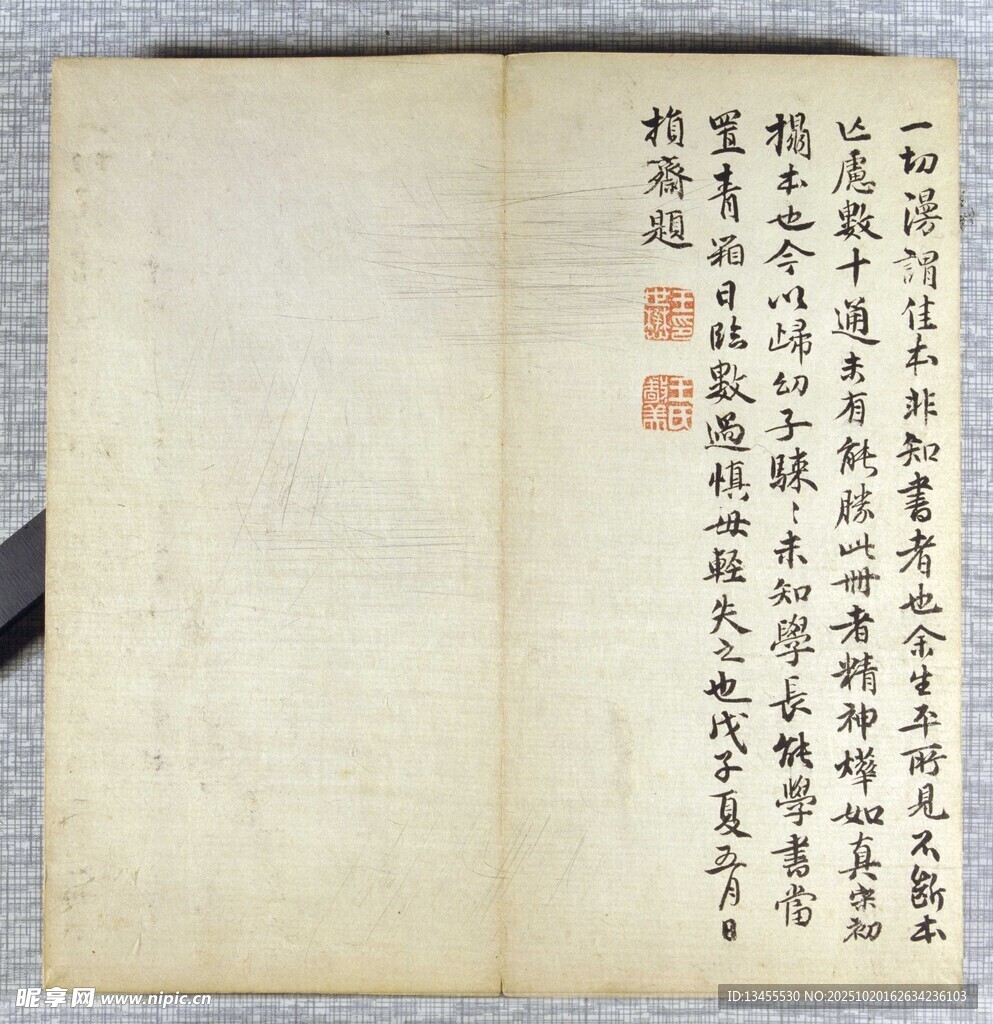 一切漫謂佳本非知書者也余生平所見不斷本
亾慮數十通未有能勝此冊者精神燁如真宋初
搨本也今以歸幼子騋〻未知學長能學書當
置青箱日臨數過慎毋輕失之也戊子夏五月日
損齋題
王印世懋
王氏敬美
昵享网 www.nipic.cn
ID:13455530 NO:20251020162634236103